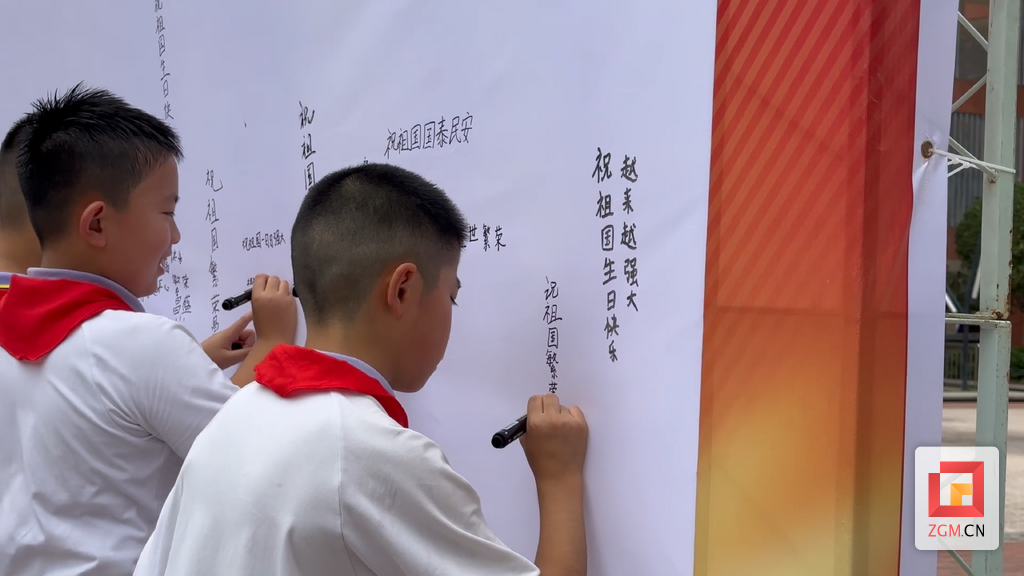 祝祖国生日快
祝祖国
祝祖国国泰民安
祝祖国繁荣昌
祝祖国一日日强大
世繁荣
祝祖国繁荣
祝祖国生日快乐
越来越强大
ZGM.CN